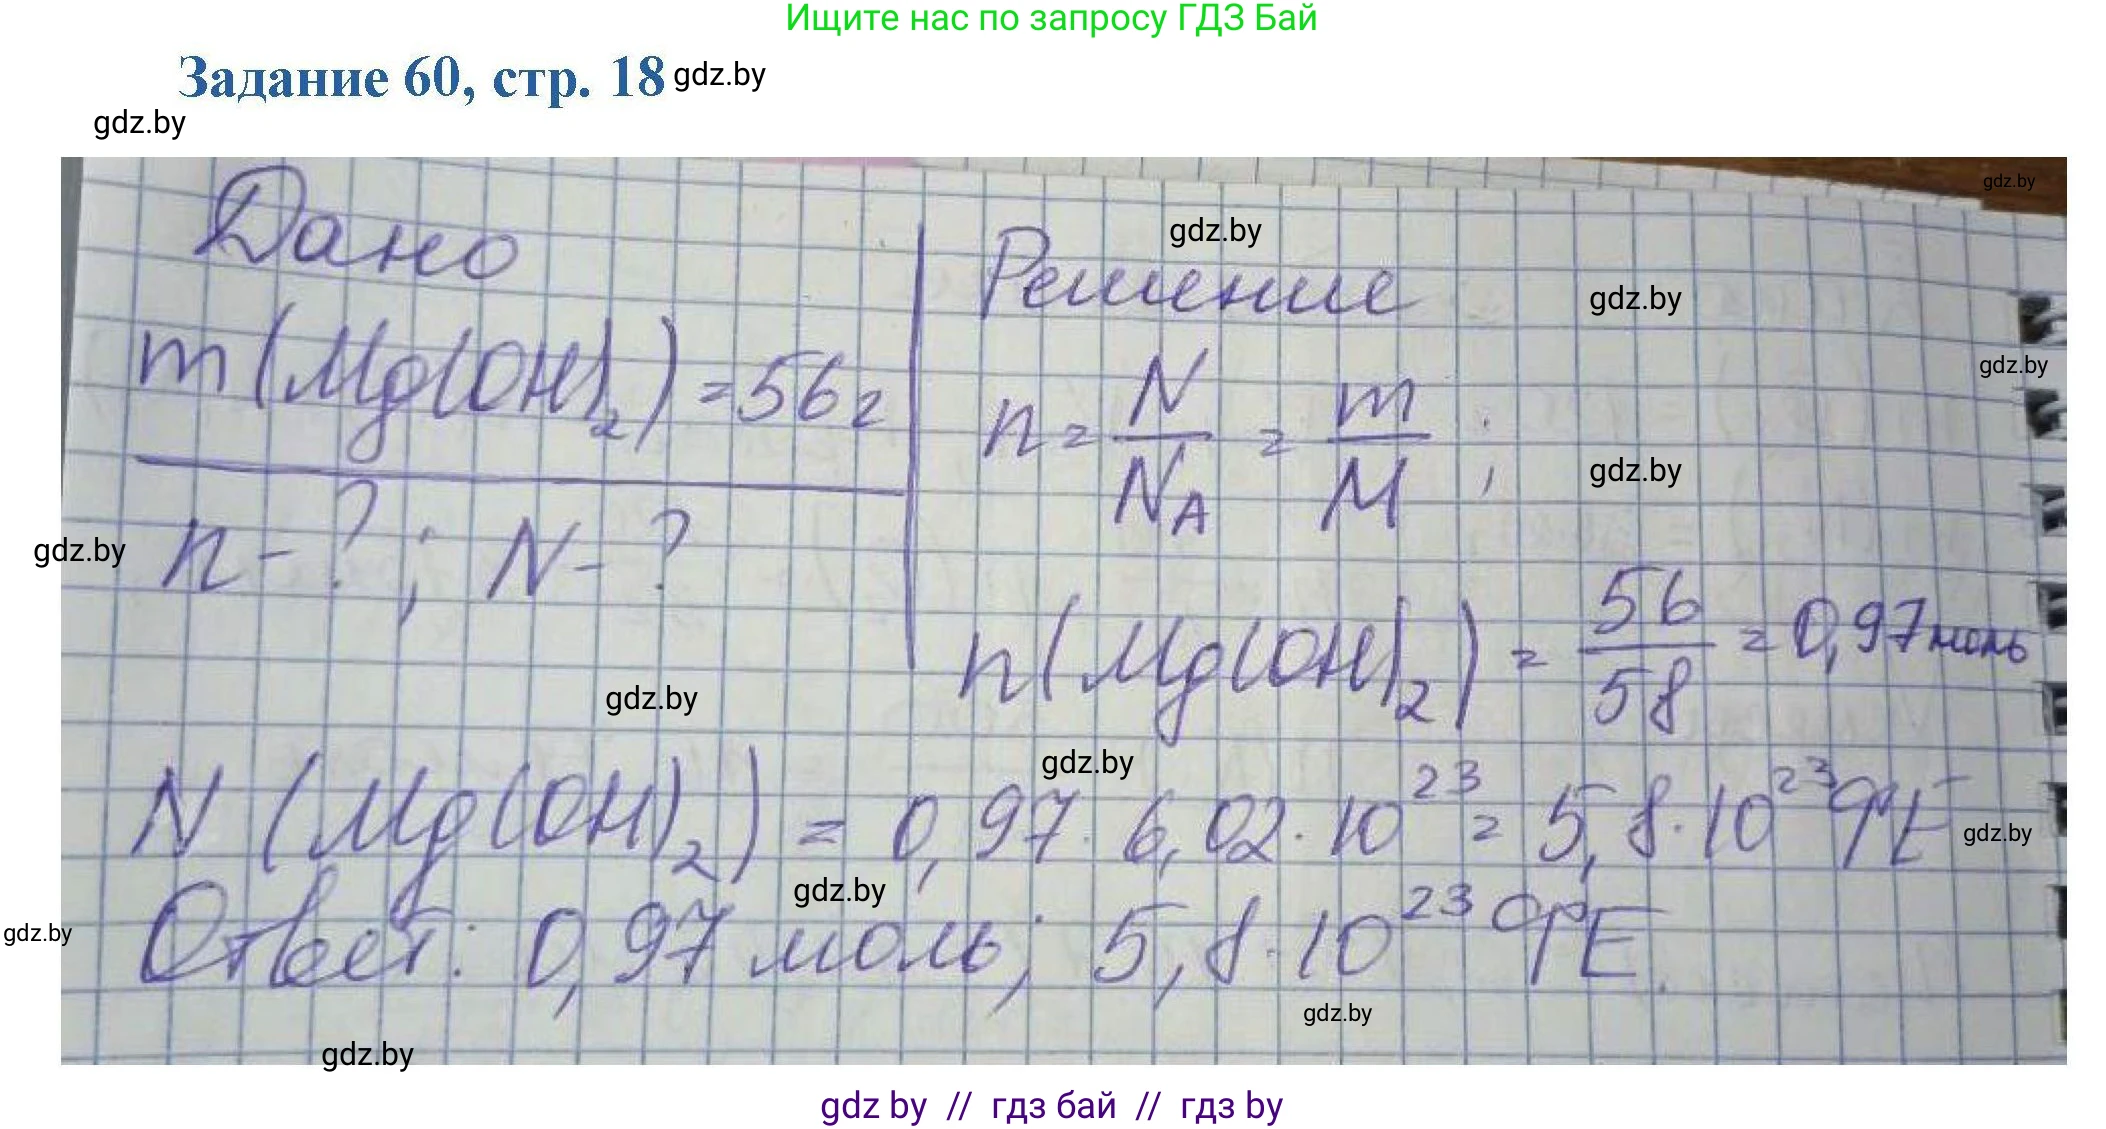 Ищите нас по запросу ГДЗ Бай
Задание 60, стр. 18 gdz.by
gdz.by
gdz.by
Дано
Решение
gdz.by
gdz.by
m(Mg(OH)₂) = 56г
n = N/N_A = m/M ;
gdz.by
gdz.by
n - ? ; N - ?
gdz.by
n(Mg(OH)₂) = 56/58 = 0,97 моль
gdz.by
gdz.by
N (Mg(OH)₂) = 0,97 · 6,02 · 10²³ = 5,8 · 10²³ ФЕ
gdz.by
gdz.by
Ответ: 0,97 моль; 5,8 · 10²³ ФЕ.
gdz.by
gdz.by
gdz.by
gdz by // гдз бай // гдз by